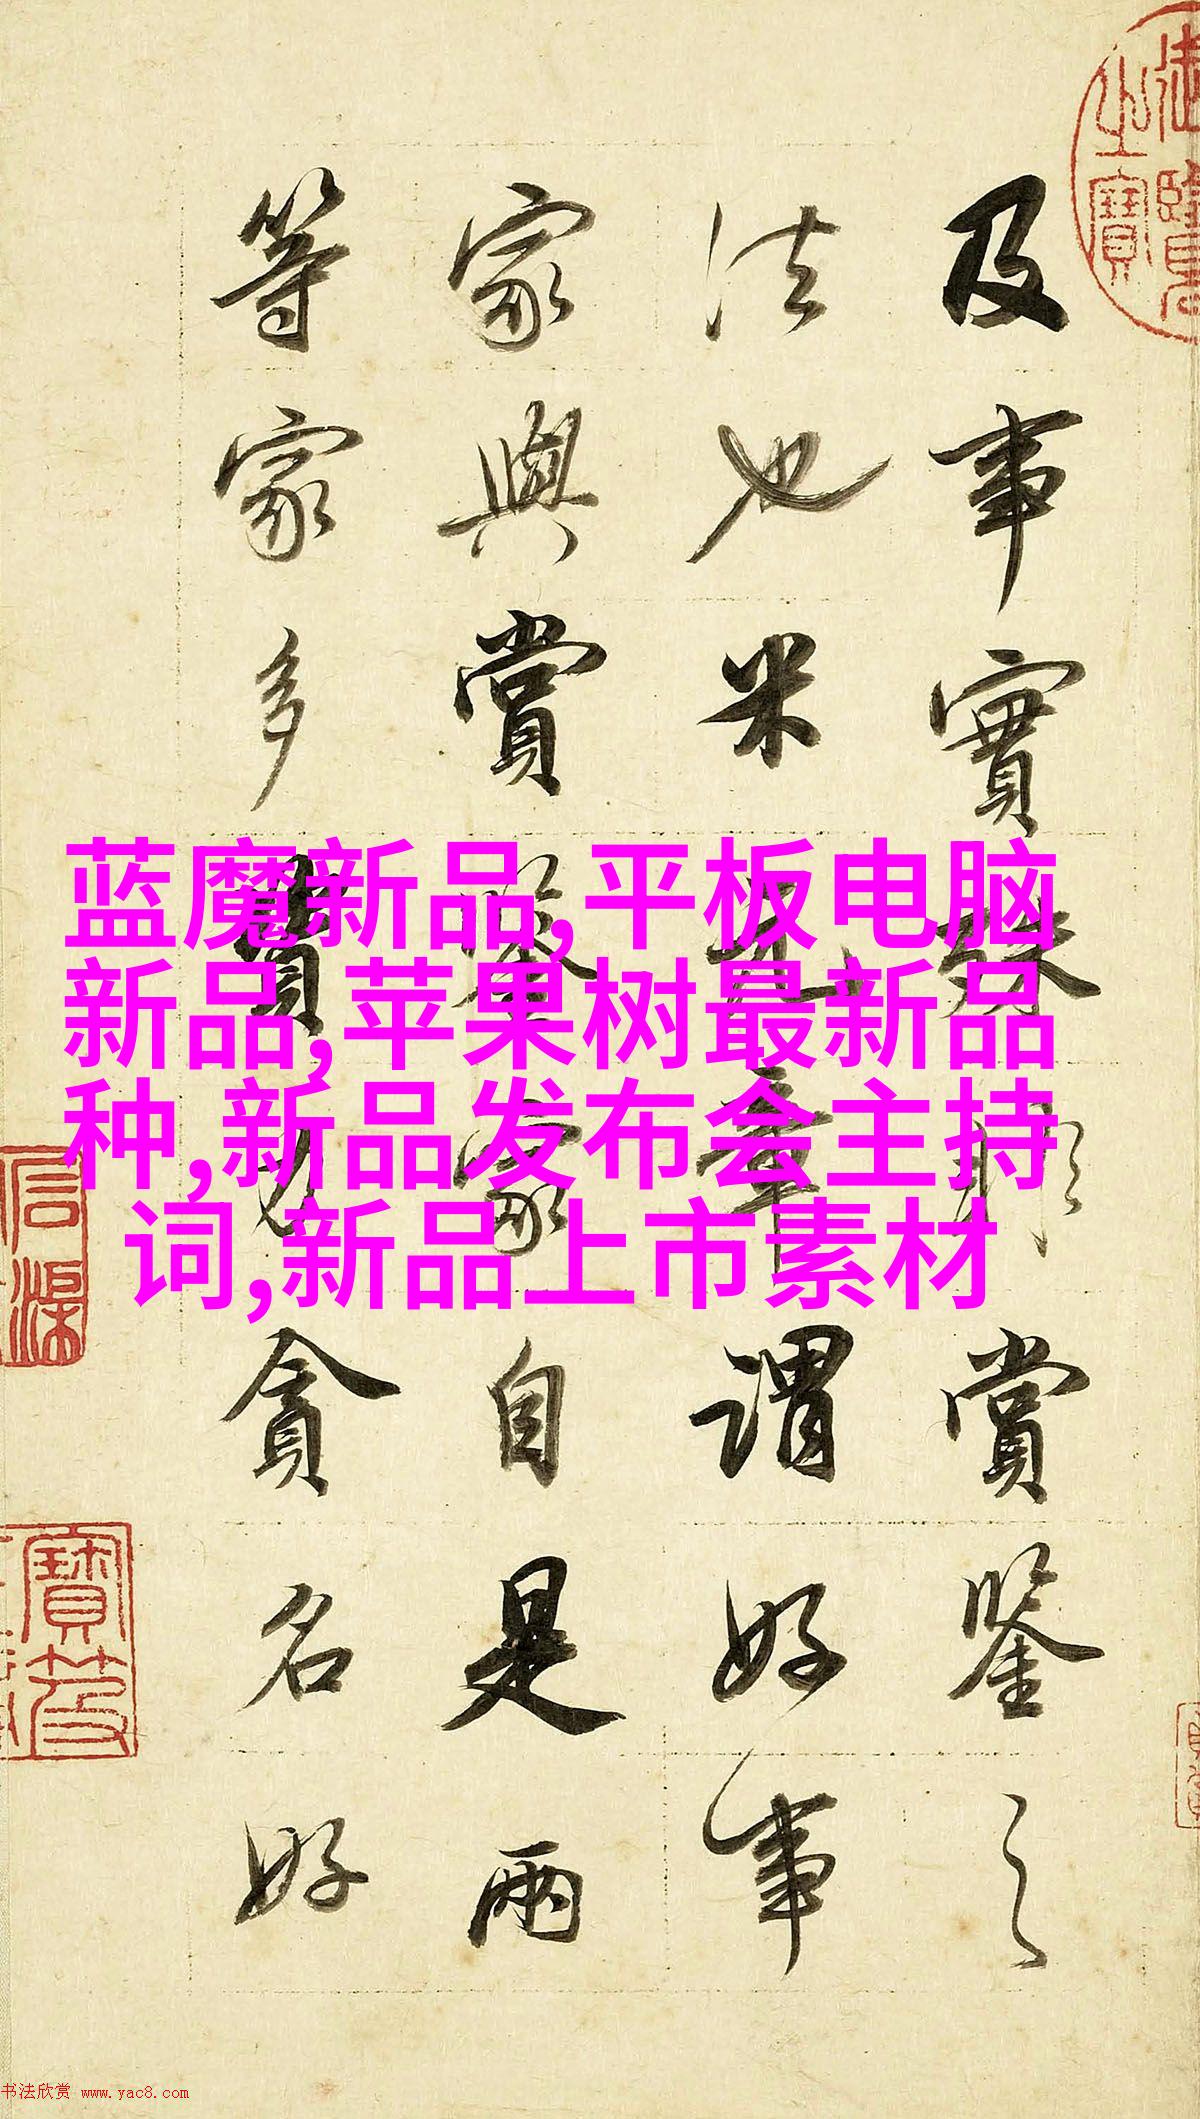 及事實殊賞鑒之
法也米元章謂好事
家與賞鑒家自是兩
等家多資力貪名好
蓝魔新品,平板电脑
新品,苹果树最新品
种,新品发布会主持
词,新品上市素材
石渠
寶笈
书法欣赏 www.yac8.com